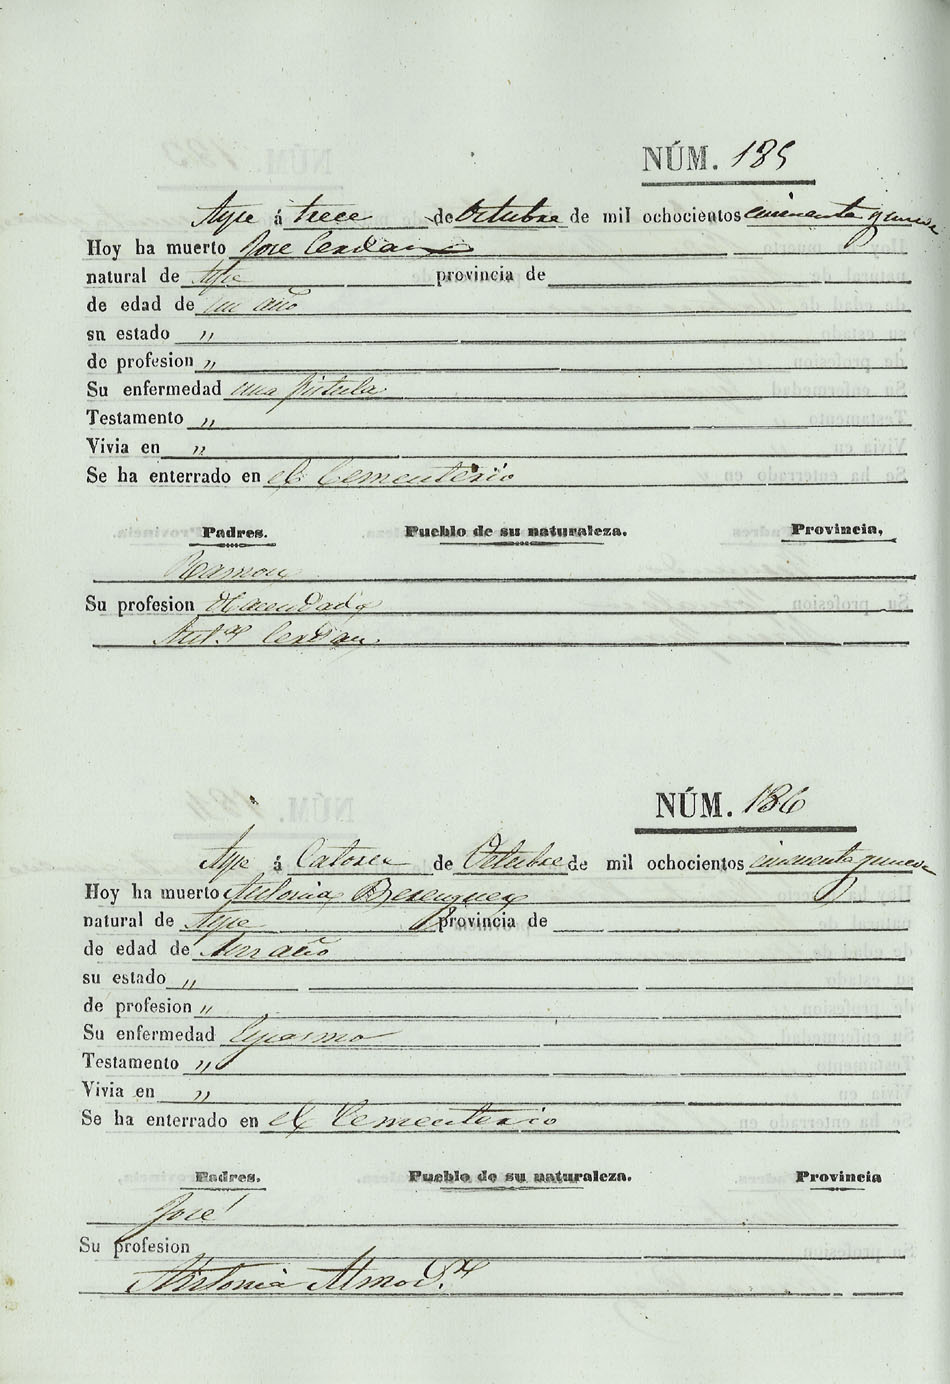 NÚM. 185
Aspe á trece de Octubre de mil ochocientos cincuenta y nueve
Hoy ha muerto Jose Cerdan
natural de Aspe provincia de
de edad de un año
sn estado "
de profesion "
Su enfermedad una fistula
Testamento "
Vivia en "
Se ha enterrado en el Cementerio
Padres. Pueblo de su naturaleza. Provincia,
Ramon
Su profesion Hacendado
Cerdan
NÚM. 186
Aspe á Catorce de Octubre de mil ochocientos cincuenta y nueve
Hoy ha muerto Antonia Berenguer
natural de Aspe provincia de
de edad de un año
su estado "
de profesion "
Su enfermedad Espasmo
Testamento "
Vivia en "
Se ha enterrado en el Cementerio
Padres. Pueblo de su naturaleza. Provincia
José
Su profesion
Antonia Almod.ar